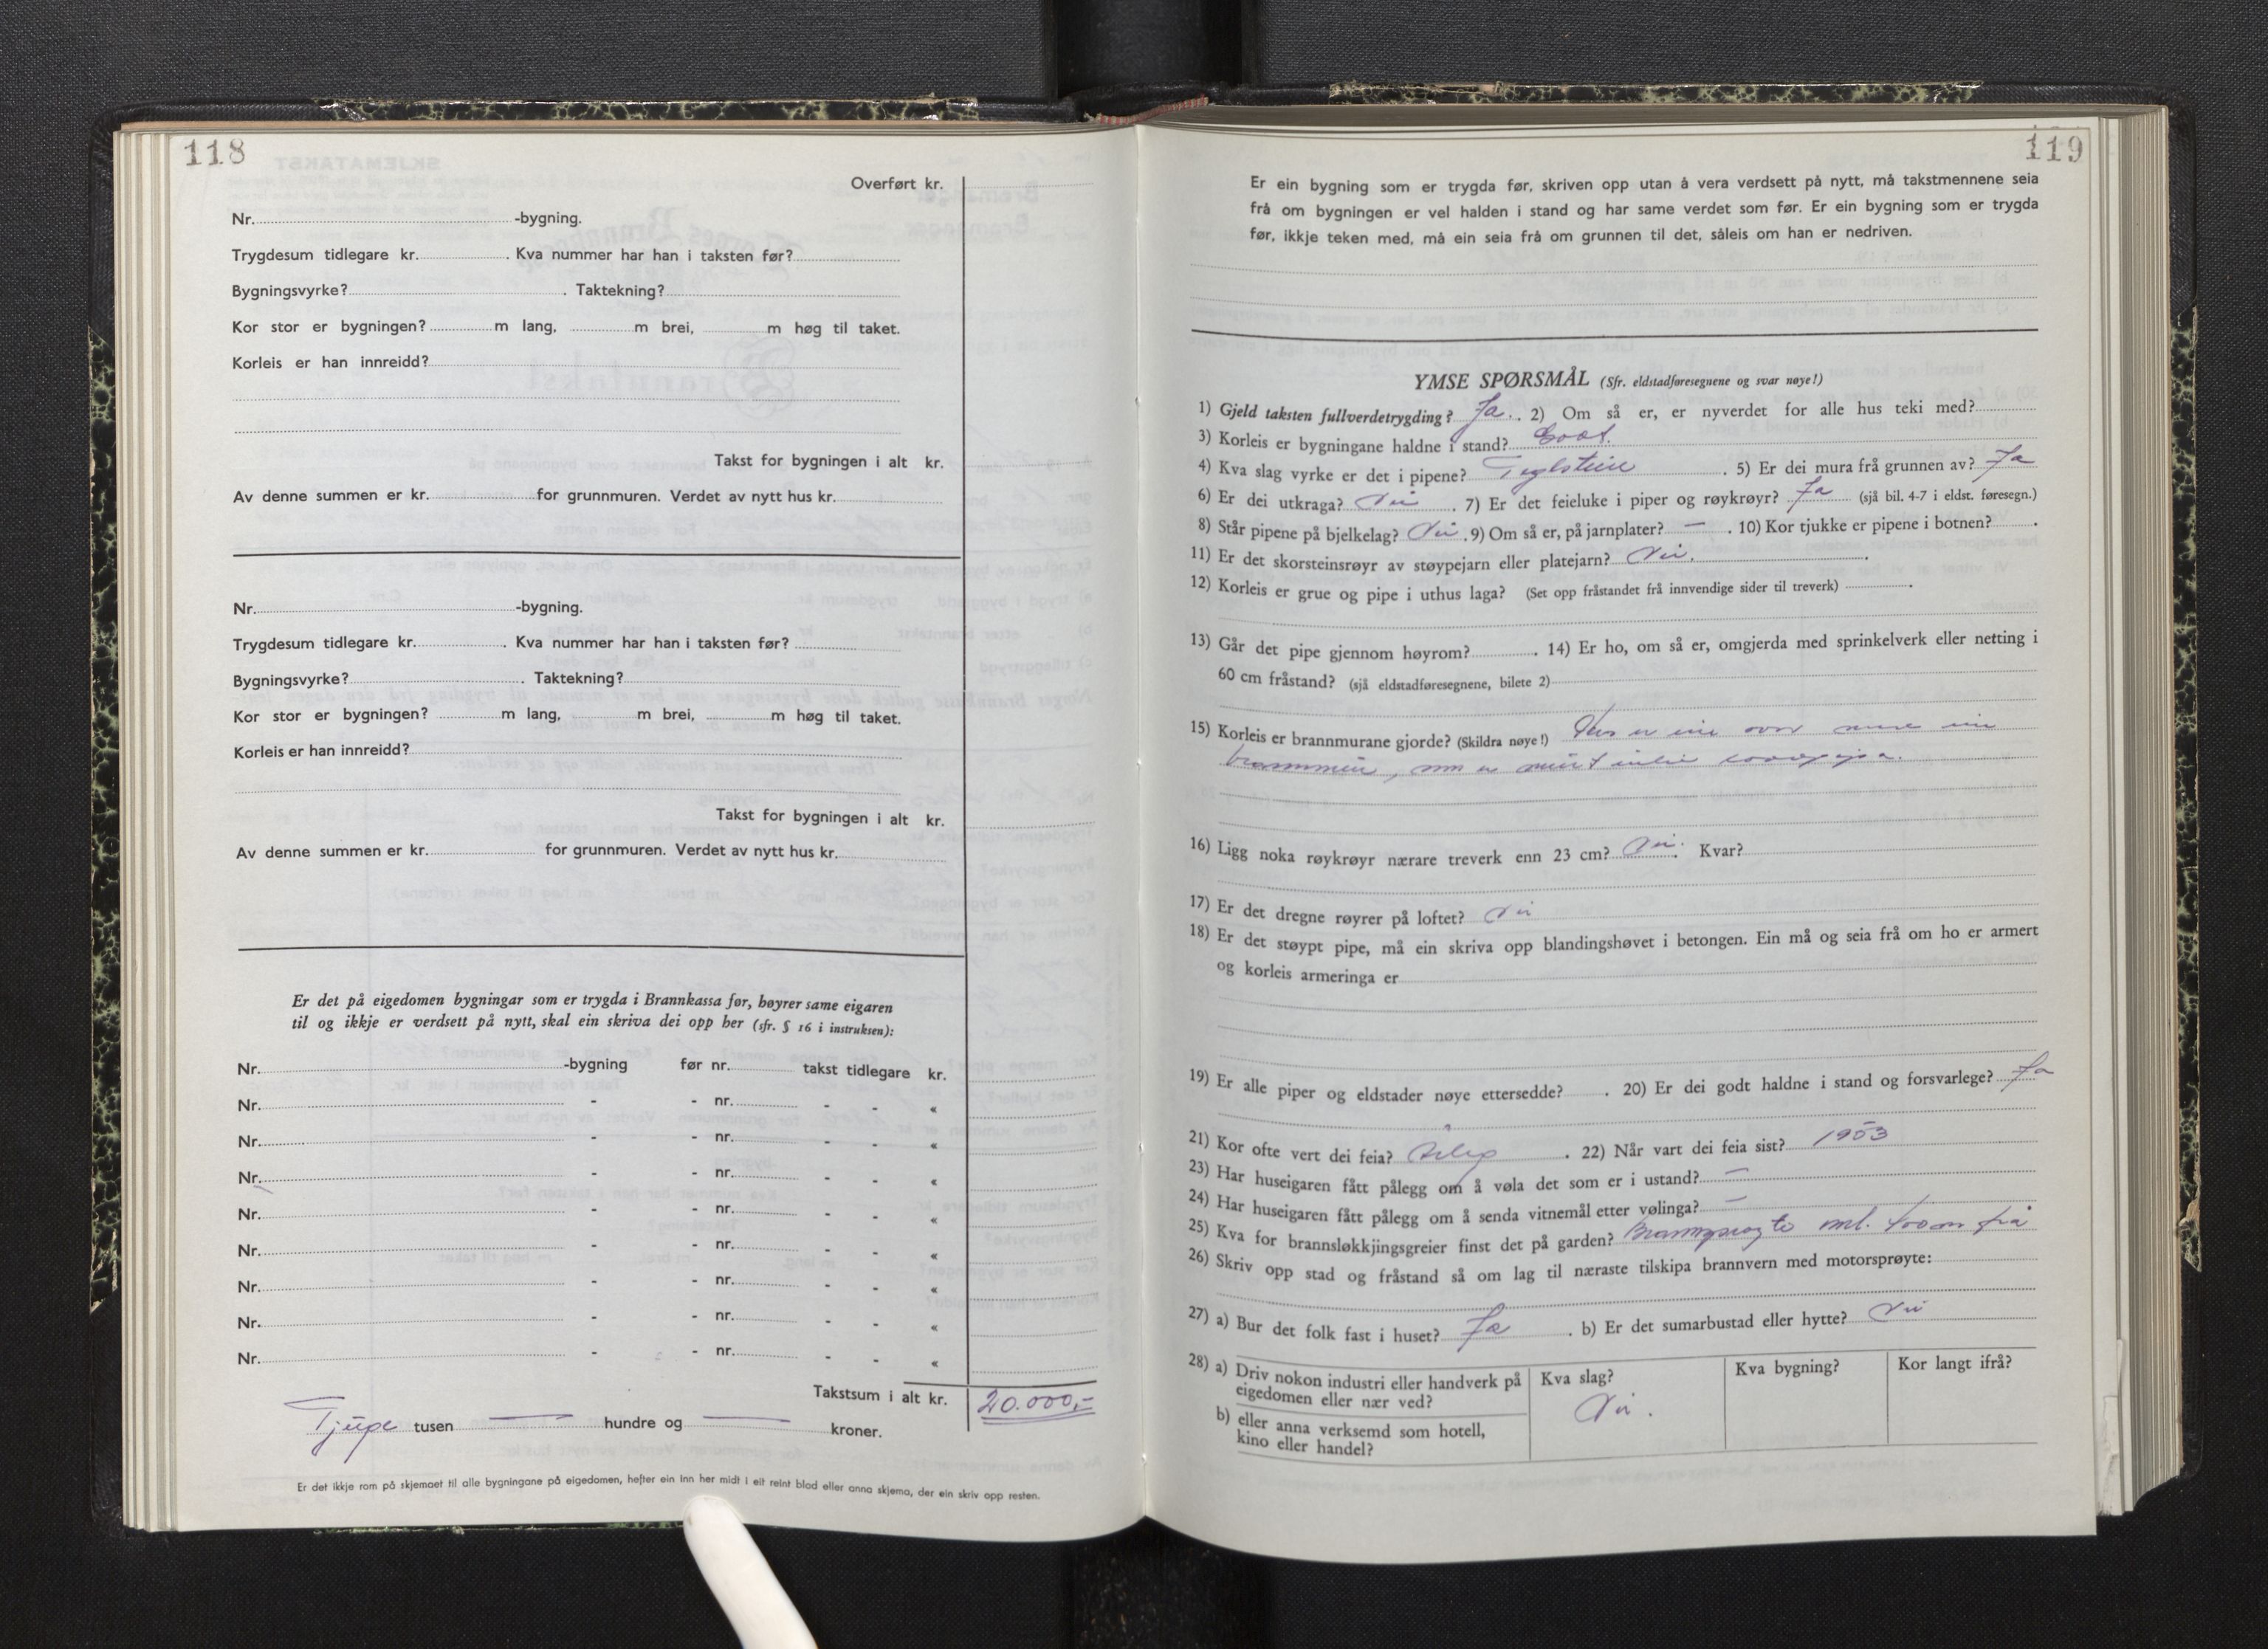 118
Overført kr.
Nr. -bygning.
Trygdesum tidlegare kr. . Kva nummer har han i taksten før?
Bygningsvyrke? . Taktekning?
Kor stor er bygningen? m lang, m brei, m høg til taket.
Korleis er han innreidd?
Takst for bygningen i alt kr.
Av denne summen er kr. for grunnmuren. Verdet av nytt hus kr.
Nr. -bygning.
Trygdesum tidlegare kr. . Kva nummer har han i taksten før?
Bygningsvyrke? . Taktekning?
Kor stor er bygningen? m lang, m brei, m høg til taket.
Korleis er han innreidd?
Takst for bygningen i alt kr.
Av denne summen er kr. for grunnmuren. Verdet av nytt hus kr.
Er det på eigedomen bygningar som er trygda i Brannkassa før, høyrer same eigaren
til og ikkje er verdsett på nytt, skal ein skriva dei opp her (sfr. § 16 i instruksen):
Nr. -bygning før nr. takst tidlegare kr.
Nr. - - nr. - - «
Nr. - - nr. - - «
Nr. - - nr. - - «
Nr. - - nr. - - «
Nr. - - nr. - - «
Nr. - - nr. - - «
Nr. - - nr. - - «
Nr. - - nr. - - «
Takstsum i alt kr. 20.000,-
Tjuge tusen — hundre og — kroner.
Er det ikkje rom på skjemaet til alle bygningane på eigedomen, hefter ein inn her midt i eit reint blad eller anna skjema, der ein skriv opp resten.
119
Er ein bygning som er trygda før, skriven opp utan å vera verdsett på nytt, må takstmennene seia
frå om bygningen er vel halden i stand og har same verdet som før. Er ein bygning som er trygda
før, ikkje teken med, må ein seia frå om grunnen til det, såleis om han er nedriven.
YMSE SPØRSMÅL (Sfr. eldstadføresegnene og svar nøye!)
1) Gjeld taksten fullverdetrygding? Ja. . 2) Om så er, er nyverdet for alle hus teki med?
3) Korleis er bygningane haldne i stand? Godt.
4) Kva slag vyrke er det i pipene? Teglstein . 5) Er dei mura frå grunnen av? Ja
6) Er dei utkraga? Nei . 7) Er det feieluke i piper og røykrøyr? Ja (sjå bil. 4-7 i eldst. føresegn.)
8) Står pipene på bjelkelag? Nei . 9) Om så er, på jarnplater? — . 10) Kor tjukke er pipene i botnen? .
11) Er det skorsteinsrøyr av støypejarn eller platejarn? Nei. .
12) Korleis er grue og pipe i uthus laga? (Set opp fråstandet frå innvendige sider til treverk) .
13) Går det pipe gjennom høyrom? . 14) Er ho, om så er, omgjerda med sprinkelverk eller netting i
60 cm fråstand? (sjå eldstadføresegnene, bilete 2)
15) Korleis er brannmurane gjorde? (Skildra nøye!)
16) Ligg noka røykrøyr nærare treverk enn 23 cm? Nei. . Kvar?
17) Er det dregne røyrer på loftet? Nei
18) Er det støypt pipe, må ein skriva opp blandingshøvet i betongen. Ein må og seia frå om ho er armert
og korleis armeringa er
19) Er alle piper og eldstader nøye ettersedde? . 20) Er dei godt haldne i stand og forsvarlege? Ja
21) Kor ofte vert dei feia? Årleg . 22) Når vart dei feia sist? 1953
23) Har huseigaren fått pålegg om å vøla det som er i ustand? —
24) Har huseigaren fått pålegg om å senda vitnemål etter vølinga? —
25) Kva for brannsløkkjingsgreier finst det på garden?
26) Skriv opp stad og fråstand så om lag til næraste tilskipa brannvern med motorsprøyte:
27) a) Bur det folk fast i huset? Ja . b) Er det sumarbustad eller hytte? Nei
28) a) Driv nokon industri eller handverk på Kva slag? Kva bygning? Kor langt ifrå?
eigedomen eller nær ved? Nei.
b) eller anna verksemd som hotell,
kino eller handel?